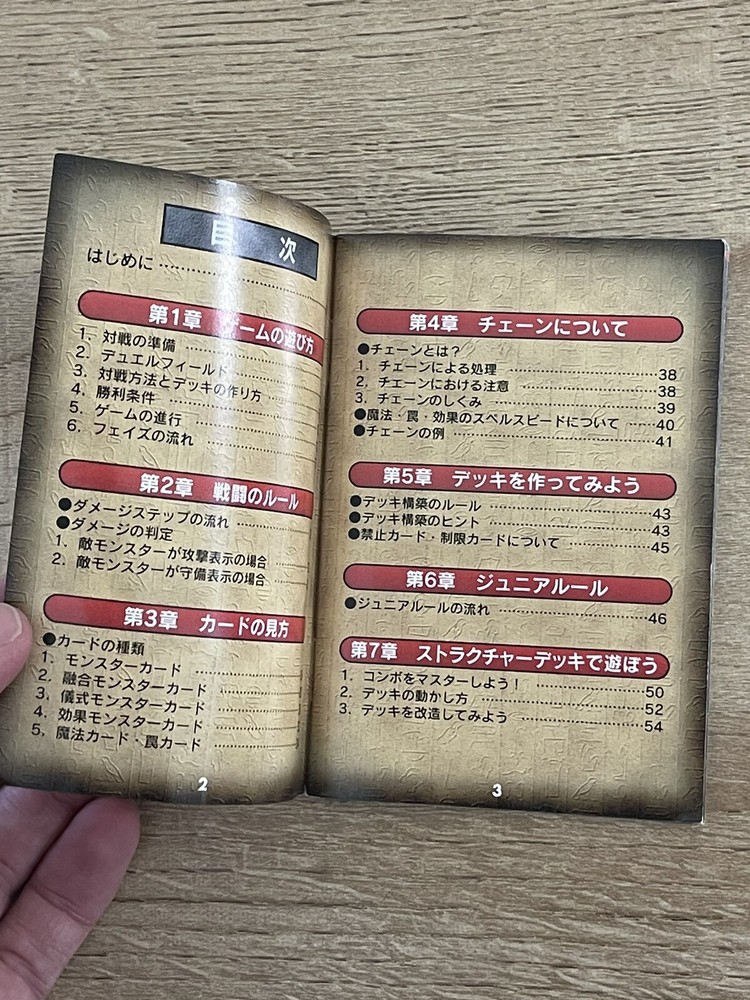 目次
はじめに
第1章 ゲームの遊び方
1. 対戦の準備
2. デュエルフィールド
3. 対戦方法とデッキの作り方
4. 勝利条件
5. ゲームの進行
6. フェイズの流れ
第2章 戦闘のルール
●ダメージステップの流れ
●ダメージの判定
1. 敵モンスターが攻撃表示の場合
2. 敵モンスターが守備表示の場合
第3章 カードの見方
●カードの種類
1. モンスターカード
2. 融合モンスターカード
3. 儀式モンスターカード
4. 効果モンスターカード
5. 魔法カード・罠カード
2
第4章 チェーンについて
●チェーンとは?
1. チェーンによる処理 38
2. チェーンにおける注意 38
3. チェーンのしくみ 39
●魔法・罠・効果のスペルスピードについて 40
●チェーンの例 41
第5章 デッキを作ってみよう
●デッキ構築のルール 43
●デッキ構築のヒント 43
●禁止カード・制限カードについて 45
第6章 ジュニアルール
●ジュニアルールの流れ 46
第7章 ストラクチャーデッキで遊ぼう
1. コンボをマスターしよう! 50
2. デッキの動かし方 52
3. デッキを改造してみよう 54
3